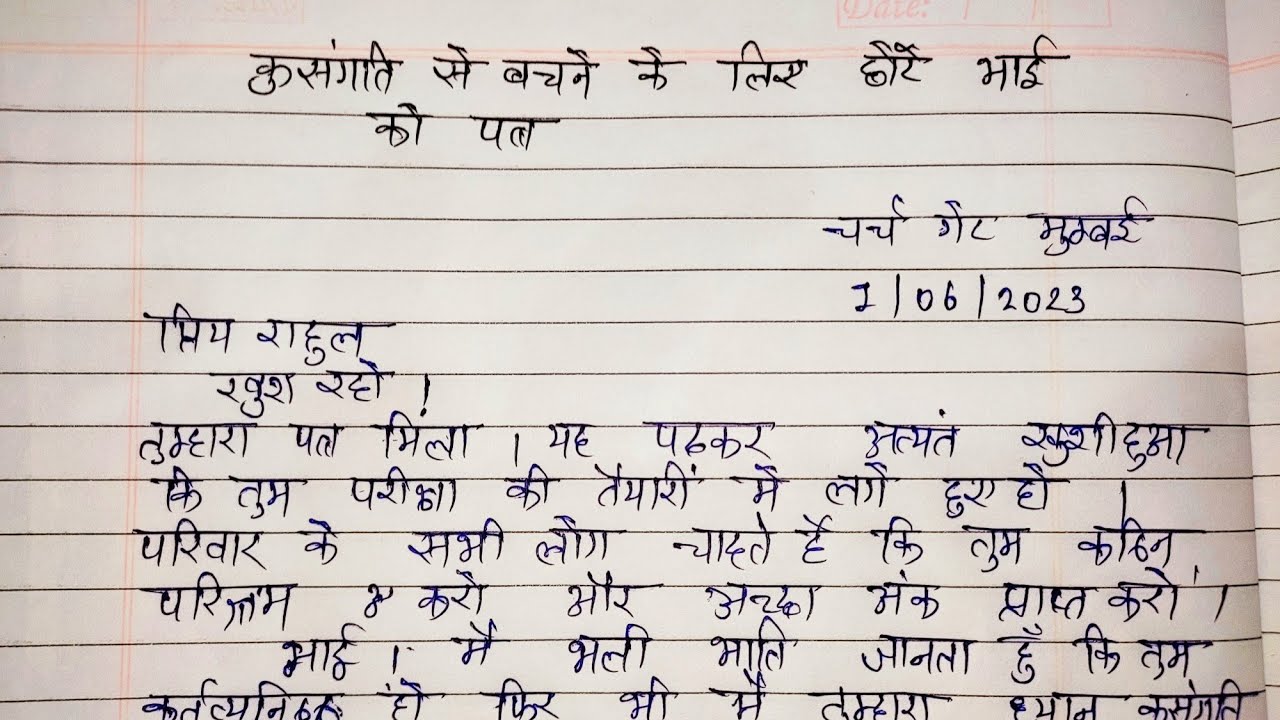 Date:
कुसंगति से बचने के लिए छोटे भाई
को पत्र
चर्च गेट मुम्बई
1/06/2023
प्रिय राहुल
खुश रहो ।
तुम्हारा पत्र मिला । यह पढकर अत्यंत खुशी हुआ
कि तुम परीक्षा की तैयारी में लगे हुए हो ।
परिवार के सभी लोग चाहते हैं कि तुम कठिन
परिश्रम करो और अच्छा अंक प्राप्त करो ।
भाई । मैं भली भाति जानता हूँ कि तुम
कर्तव्यनिष्ठ हो फिर भी मैं तुम्हारा ध्यान कुसंगति